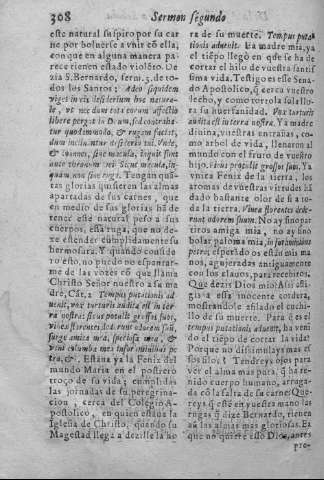 308 Sermon segundo
este natural suspiro por su car
ne por bolverse a vnir cõ ella,
con que en alguna manera pa-
rece tienen estado violẽto. De
zia S. Bernardo, serm. 3. de to-
dos los Santos: Adeo siquidem
viget in eis desiderium hoc natura-
le, vt nec dum tota eorum affectio
libere pergat in Deum, sed contrahatur
quodammodo, & rugam faciat,
dum
& macula,
quam non sine ruga. Tengan quãtas
glorias quisieren las almas
apartadas de sus carnes, que
en medio de sus glorias hã de
tener este natural peso a sus
cuerpos, essa ruga, que no de-
xe estender cumplidamente su
hermosura. Y quando conside
ro esto, no pierdo no espantar-
me de las vozes cõ que llama
Christo Señor nuestro a su ma
dre, Cãt. 2. Tempus putationis ad-
uenit, vox turturis audita est in ter-
ra nostra: ficus protulit grossos suos,
vineæ florentes ded. runt odorem suũ,
surge amica mea, speciosa mea, &
veni columba mea in foraminibus pe
træ, &c. Estaua ya la Fenix del
mundo Maria en el postrero
troço de su vida; cumplidas
las jornadas de su peregrina-
cion, cerca del Colegio A-
postolico, en quien estaua la
Iglesia de Christo, quando su
Magestad llega a dezille la ho
ra de su muerte. Tempus puta
tionis aduenit. Ea madre mia, ya
el tiẽpo llegò en que se ha de
cortar el hilo de vuestra santis
sima vida. Testigo es esse Sena-
do Apostolico, q̃ cerca vuestro
lecho, y como tortola sola llo-
ra su huerfanidad. Vox turturis
audita est in terra nostra. Ya madre
diuina, vuestras entrañas, co-
mo arbol de vida, llenaron al
mundo con el fruto de vuestro
hijo. Ficus protulit grossos suos. Ya
vnica Fenix de la tierra, los
aromas de vuestras virtudes hã
dado bastante olor de si a to-
da la tierra. Vineæ florentes dede-
runt odorem suum. No ay sino par
tiros amiga mia, no ay sino
bolar paloma mia, in foraminibus
petræ; esperãdo os estãn mis ma
nos, agujeradas antiguamente
con los clauos, para recebiros.
Que dezis Dios mio? Assi
a essa inocente cordera,
mostrandole afilado el cuchi-
llo de su muerte. Para q̃ es el
tempus putationis aduenit, ha veni
do el tiẽpo de cortar la vida?
Porque no dissimulays mas es
sos silos; Tendreys ojos para
ver el alma mas pura, q̃ ha te-
nido cuerpo humano, arruga-
da cõ la falta de su carne? Que-
reys q̃ estè en vuestra mano las
rugas q̃ dize Bernardo, tienen
aũ las almas mas gloriosas. Ea
que no quiere esso Dios, antes
pro-